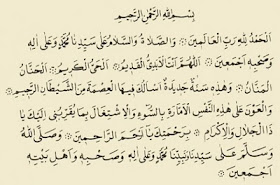 بِسْمِ اللهِ الرَّحْمٰنِ الرَّحِيْمِ
اَلْحَمْدُ لِلّٰهِ رَبِّ الْعَالَمِيْنَ ۞ وَالصَّلَاةُ وَالسَّلَامُ عَلَى سَيِّدِنَا مُحَمَّدٍ وَعَلَى اٰلِهِ
وَصَحْبِهِ اَجْمَعِيْنَ ۞ اَللّٰهُمَّ اَنْتَ الْاَبَدِيُّ الْقَدِيْمُ ۞ اَلْحَيُّ الْكَرِيْمُ ۞ اَلْحَنَّانُ
الْمَنَّانُ ۞ وَهٰذِهِ سَنَةٌ جَدِيْدَةٌ اَسْاَلُكَ فِيْهَا الْعِصْمَةَ مِنَ الشَّيْطَانِ الرَّجِيْمِ
وَالْعَوْنَ عَلَى هٰذِهِ النَّفْسِ الْاَمَّارَةِ بِالسُّوْءِ وَالْاِشْتِغَالَ بِمَا يُقَرِّبُنِيْ اِلَيْكَ يَا
ذَا الْجَلَالِ وَالْاِكْرَامِ ۞ بِرَحْمَتِكَ يَا اَرْحَمَ الرَّاحِمِيْنَ ۞ وَصَلَّى اللهُ
وَسَلَّمَ عَلَى سَيِّدِنَا وَنَبِيِّنَا مُحَمَّدٍ وَعَلَى اٰلِهِ وَصَحْبِهِ وَاَهْلِ بَيْتِهِ
اَجْمَعِيْنَ ۞